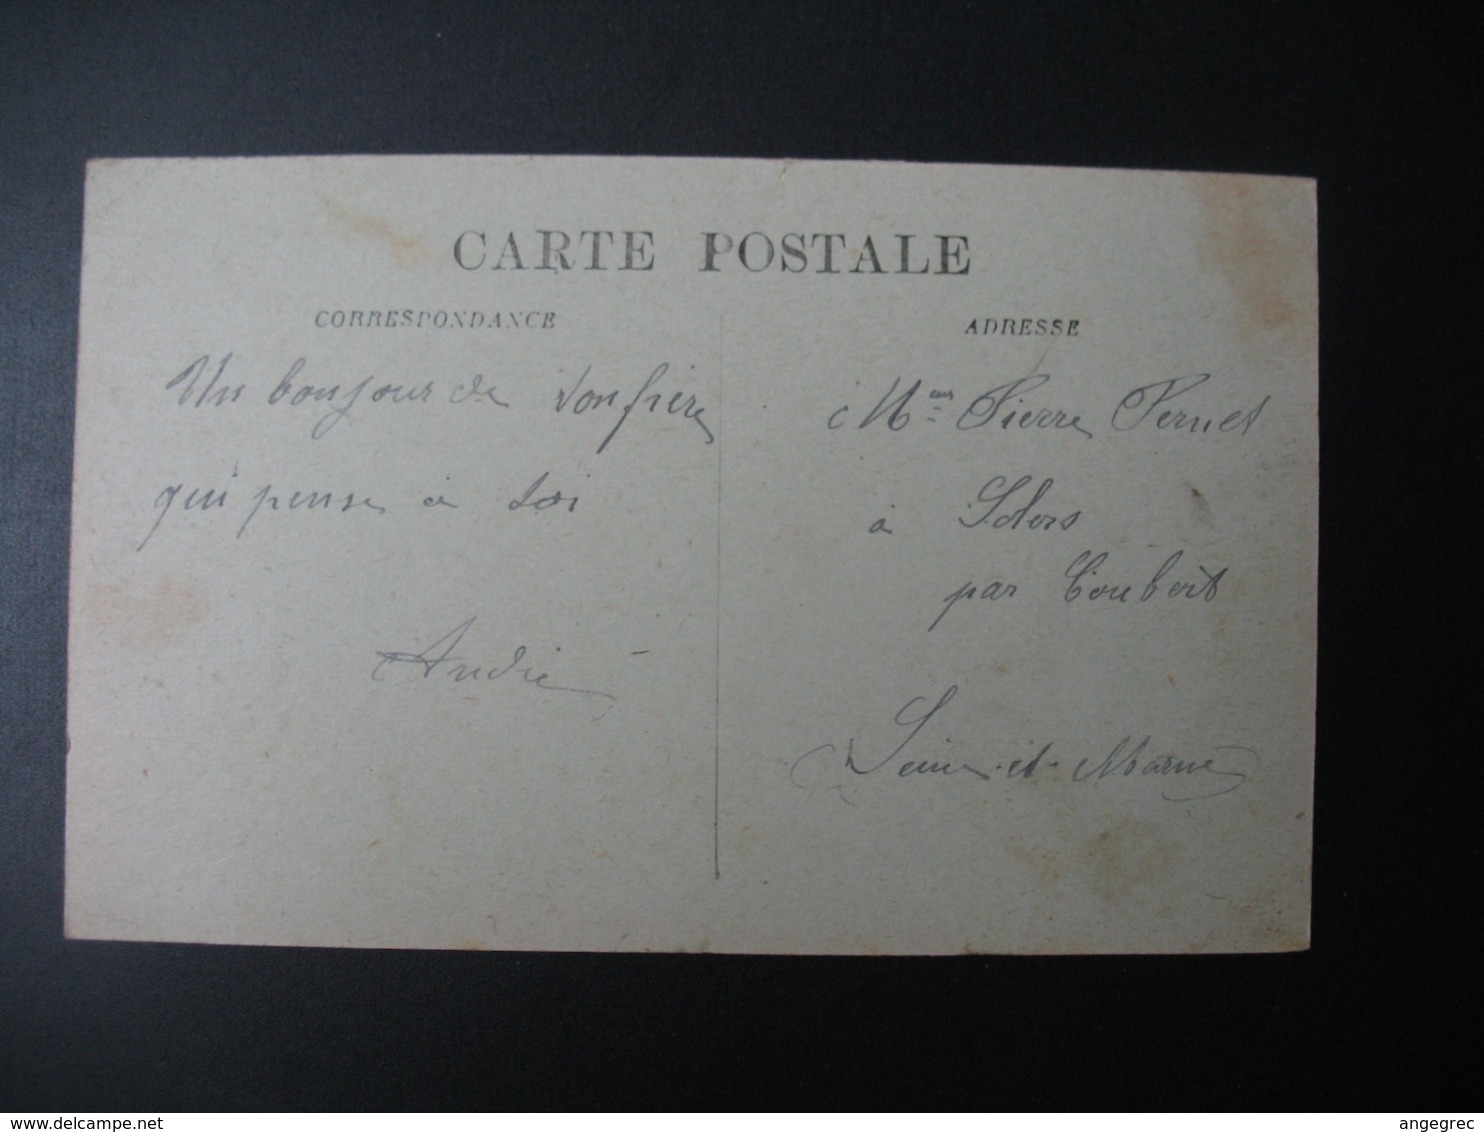 CARTE POSTALE
CORRESPONDANCE
Un bonjour de ton frère
qui pense à toi
André
ADRESSE
à Mr Pierre Pernet
à Solers
par Coubert
Seine-et-Marne
delcampe.net
angegrec